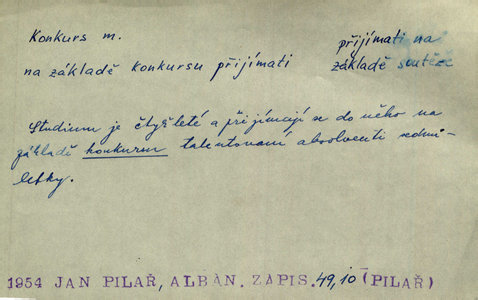 Konkurs m. přijímati na
na základě konkursu přijímati základě soutěže
Studium je čtyřleté a přijímají se do něho na
základě konkursu talentovaní absolventi sedmi-
letky.
1954 JAN PILAŘ, ALBÁN. ZÁPIS. 49,10 (PILAŘ)